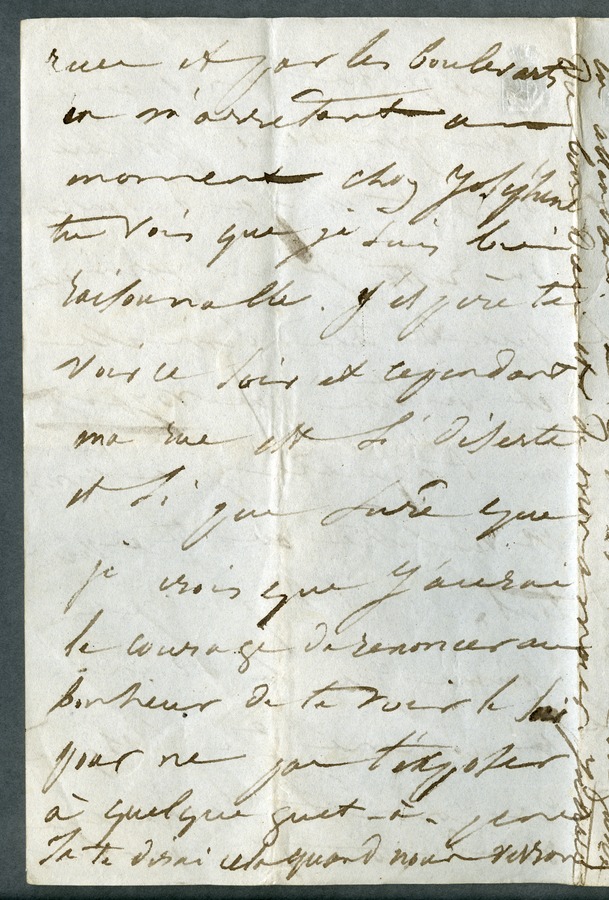 rue et par les boulevarts
en m'arretant un
moment chez Joséphine
tu vois que je suis bien
raisonnable. j'espère te
voir ce soir et cependant
ma rue est si déserte
et si peu sure que
je crois que j'aurai
le courage de renoncer au
bonheur de te voir le soir
pour ne pas t'exposer
à quelque guet-à-pens
Je te dirai cela quand nous verrons